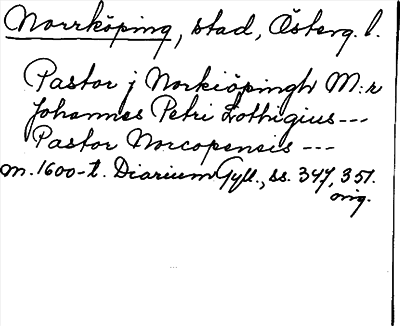 Norrköping, stad, Österg. l.
Pastor j Norkiöpingh M:r
Johannes Petri Lothigius ---
Pastor Norcopensis ---
m. 1600-t. Diarium Gyll., ss. 347, 351.
orig.